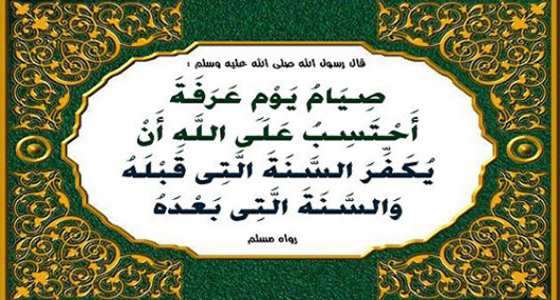 قال رسول الله صلى الله عليه وسلم :
صِيَامُ يَوْمِ عَرَفَةَ
أَحْتَسِبُ عَلَى اللَّهِ أَنْ
يُكَفِّرَ السَّنَةَ الَّتِى قَبْلَهُ
وَالسَّنَةَ الَّتِى بَعْدَهُ
رواه مسلم